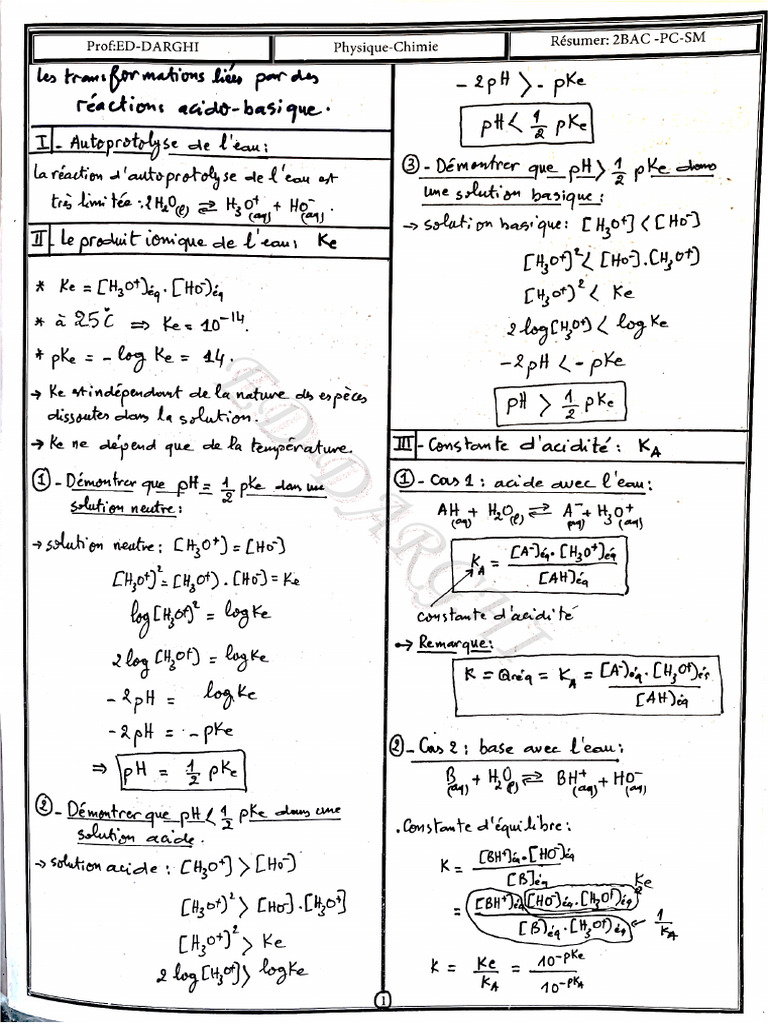 Prof:ED-DARGHI
Physique-Chimie
Résumer: 2BAC -PC-SM
Les transformations liées par des
réactions acido-basique.
I - Autoprotolyse de l'eau:
La réaction d'autoprotolyse de l'eau est
très limitée: 2H₂O(l) ⇌ H₃O⁺(aq) + HO⁻(aq)
II - Le produit ionique de l'eau: Ke
* Ke = [H₃O⁺]éq . [HO⁻]éq
* à 25°C ⇒ Ke = 10⁻¹⁴.
* pKe = - log Ke = 14.
→ Ke est indépendant de la nature des espèces
dissoutes dans la solution.
→ Ke ne dépend que de la température.
① - Démontrer que pH = 1/2 pKe dans une
solution neutre:
→ solution neutre: [H₃O⁺] = [HO⁻]
[H₃O⁺]² = [H₃O⁺] . [HO⁻] = Ke
log [H₃O⁺]² = log Ke
2 log [H₃O⁺] = log Ke
- 2pH = log Ke
- 2pH = - pKe
⇒ pH = 1/2 pKe
② - Démontrer que pH < 1/2 pKe dans une
solution acide.
→ solution acide: [H₃O⁺] > [HO⁻]
[H₃O⁺]² > [HO⁻] . [H₃O⁺]
[H₃O⁺]² > Ke
2 log [H₃O⁺] > log Ke
- 2pH > - pKe
pH < 1/2 pKe
③ - Démontrer que pH > 1/2 pKe dans
une solution basique:
→ solution basique: [H₃O⁺] < [HO⁻]
[H₃O⁺]² < [HO⁻] . [H₃O⁺]
[H₃O⁺]² < Ke
2 log [H₃O⁺] < log Ke
- 2pH < - pKe
pH > 1/2 pKe
III - Constante d'acidité: K_A
① - Cas 1: acide avec l'eau:
AH(aq) + H₂O(l) ⇌ A⁻(aq) + H₃O⁺(aq)
K_A = [A⁻]éq . [H₃O⁺]éq / [AH]éq
constante d'acidité
→ Remarque:
K = Qréq = K_A = [A⁻]éq . [H₃O⁺]éq / [AH]éq
② - Cas 2: base avec l'eau:
B(aq) + H₂O(l) ⇌ BH⁺(aq) + HO⁻(aq)
. Constante d'équilibre:
K = [BH⁺]éq . [HO⁻]éq / [B]éq
Ke
= [BH⁺]éq [HO⁻]éq . [H₃O⁺]éq / [B]éq . [H₃O⁺]éq
1/K_A
K = Ke / K_A = 10^-pKe / 10^-pK_A
1
ED-DARGHI